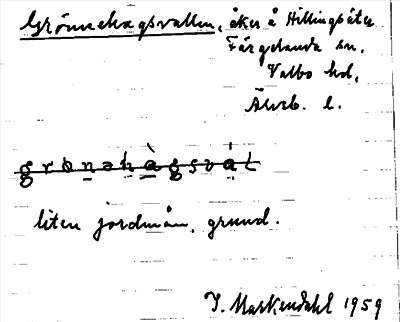 Grönnehagsvallen, åker å Hillingsäter
Färgelanda sn,
Valbo hd,
Älvsb. l.
grönəhàgsvál
liten jordmån, grund.
J. Markendahl 1959